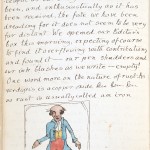 been, and enthusiastically as it has
been received, the fate we have been
dreading for it does not seem to be very
far distant. We opened our Editor's
box this morning, expecting of course
to find it overflowing with contributions,
and found it — our pen shudders and
our ink blushes as we write — empty!
One word more on the nature of rust to
verdigris is copper rust
as rust is usually called on iron